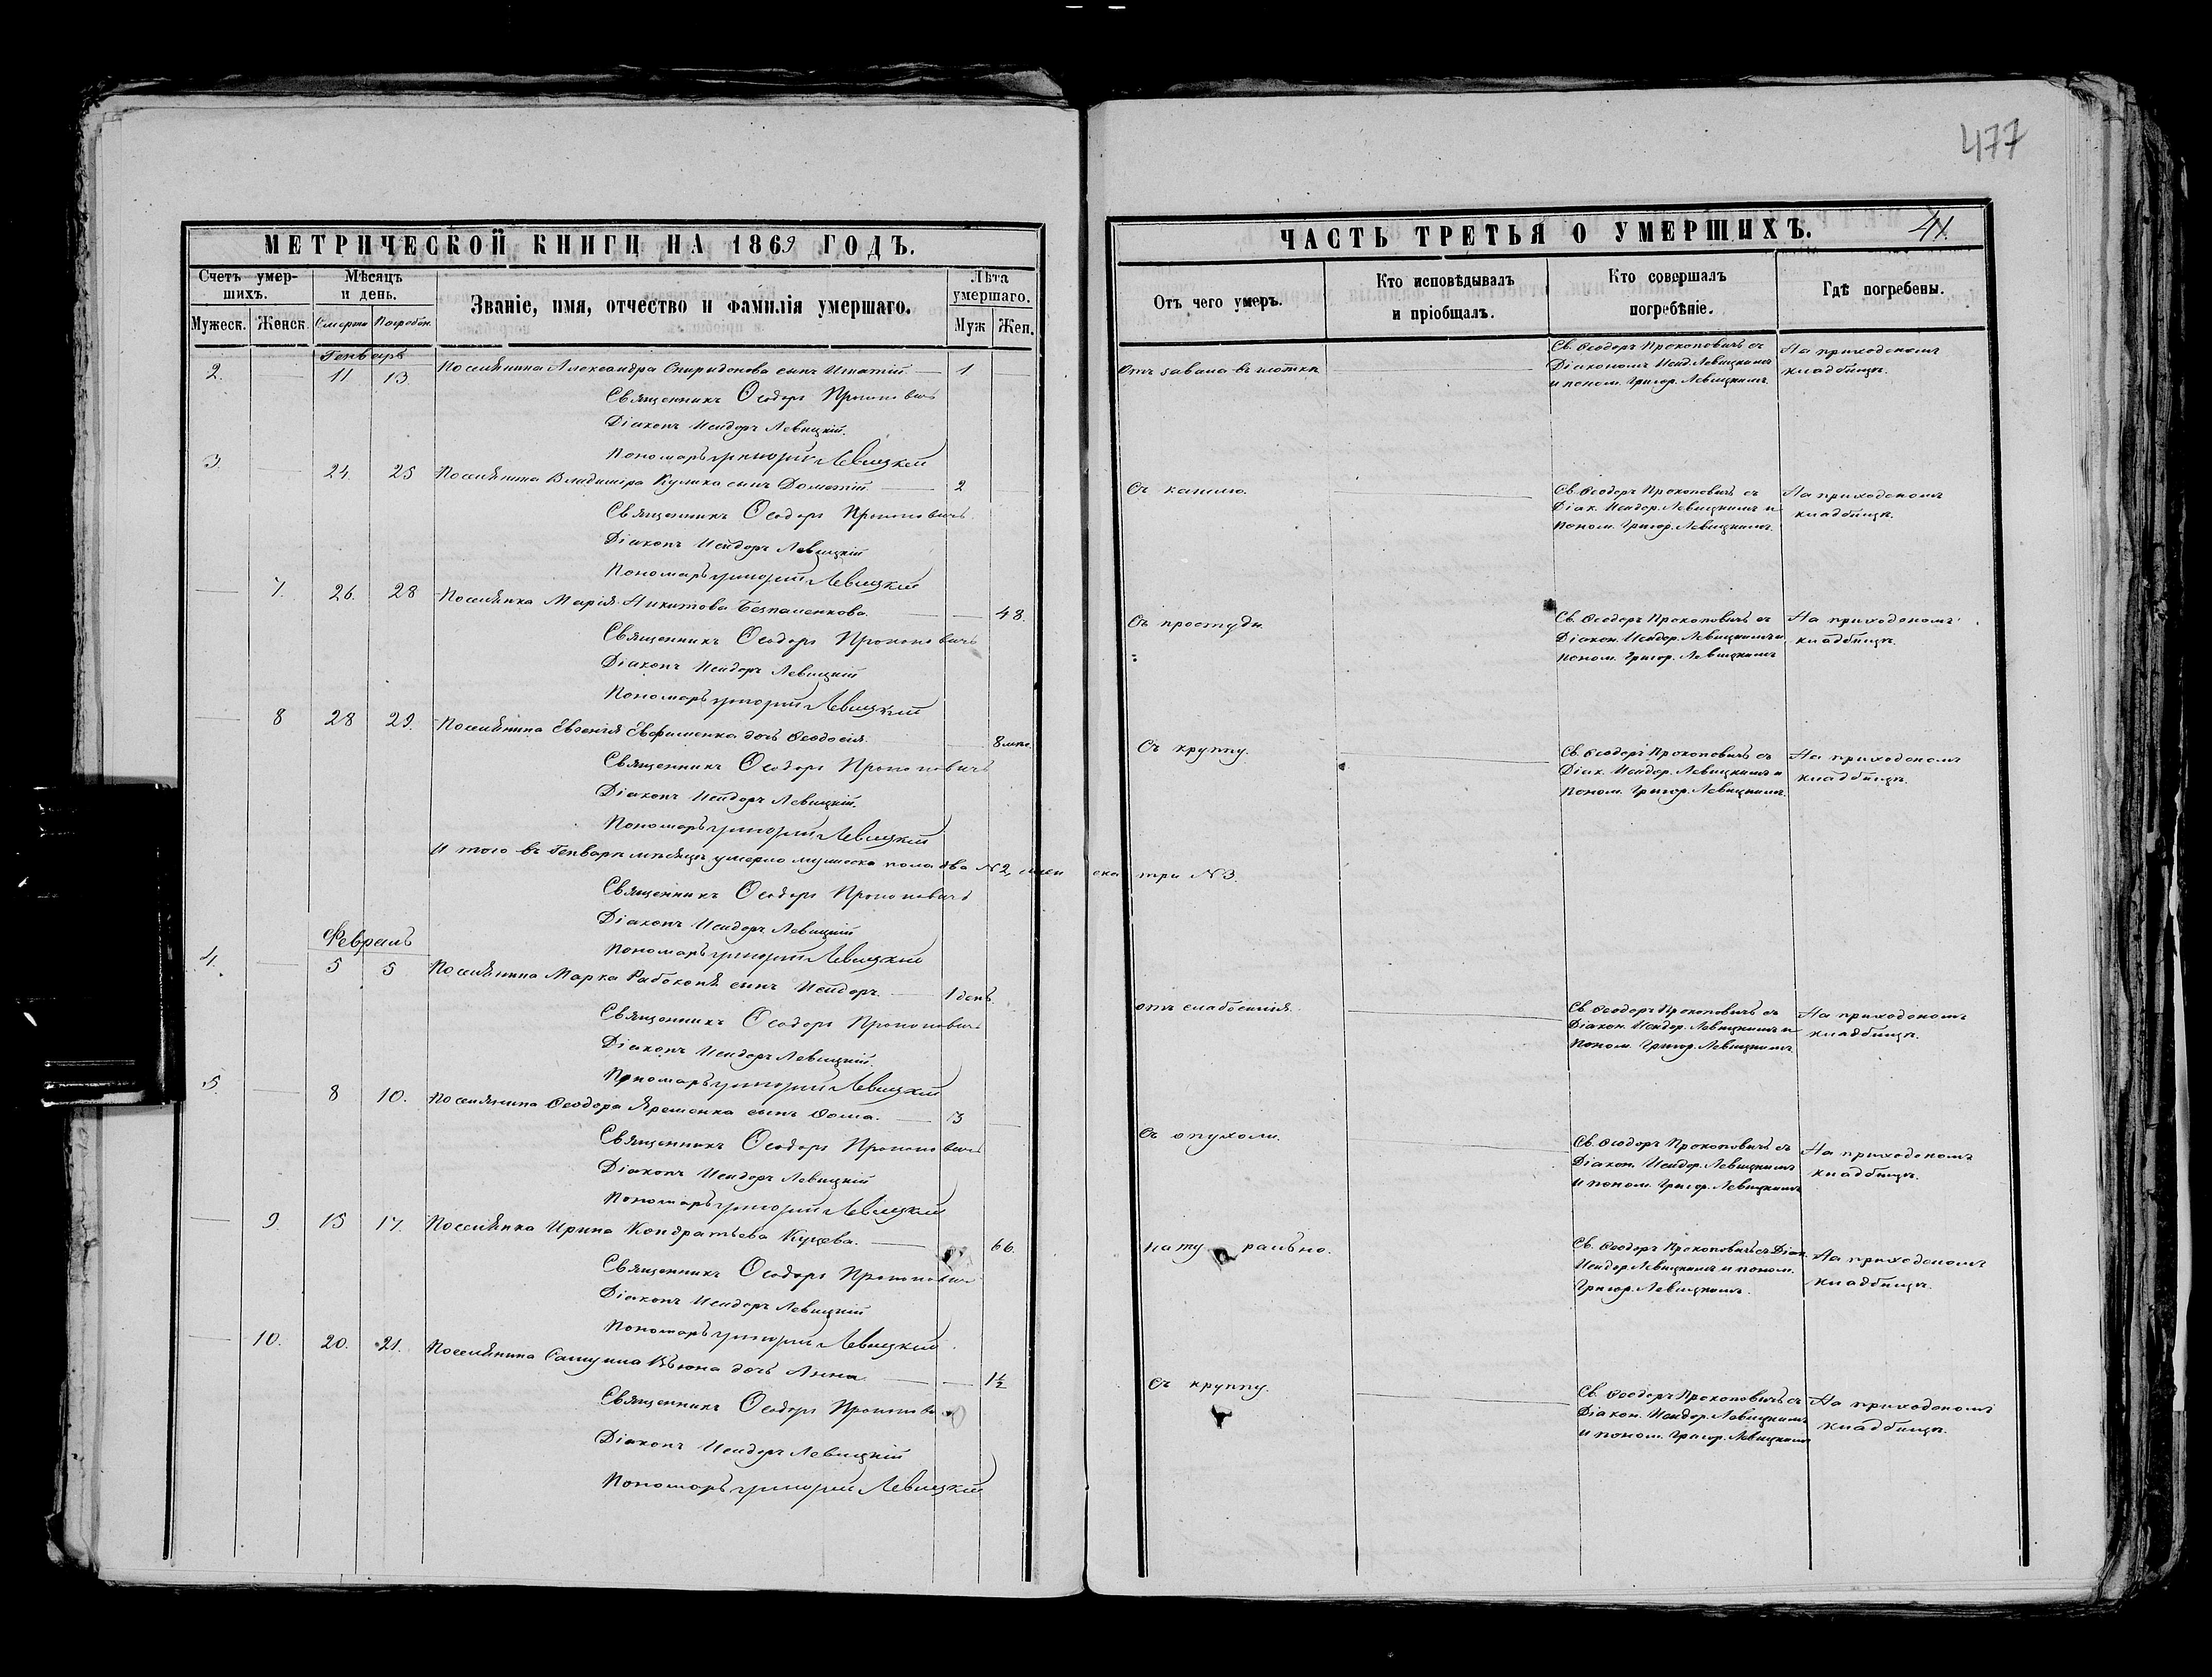 477
МЕТРИЧЕСКОЙ КНИГИ НА 1869 ГОДЪ.
Счетъ умершихъ.
Мѣсяцъ и день.
Званіе, имя, отчество и фамилія умершаго.
Лѣта умершаго.
Мужеск. Женск. Смерти Погребен. Муж Жен.
Генварь
2. 11 13 Поселянина Александра Спиридонова сынъ Игнатій 1
Священникъ Ѳеодоръ Прокоповичъ
Діаконъ Исидоръ Левицкій.
Пономарь Григорій Левицкій
3. 24. 25 Поселянина Владиміра Кулика сынъ Дометій 2
Священникъ Ѳеодоръ Прокоповичъ
Діаконъ Исидоръ Левицкій
Пономарь Григорій Левицкій
7. 26. 28 Поселянка Марія Никитова 48.
Священникъ Ѳеодоръ Прокоповичъ
Діаконъ Исидоръ Левицкій
Пономарь Григорій Левицкій
8 28 29. Поселянина Евгенія Евфименка дочь Ѳеодосія. 8 мѣс.
Священникъ Ѳеодоръ Прокоповичъ
Діаконъ Исидоръ Левицкій.
Пономарь Григорій Левицкій
И того въ Генварѣ мѣсяцѣ умерло мужеска пола два №2, женска три №3.
Священникъ Ѳеодоръ Прокоповичъ
Діаконъ Исидоръ Левицкій
Пономарь Григорій Левицкій
Февраль
4. 5 5 Поселянина Марка Рабоконя сынъ Исидоръ. 1 день.
Священникъ Ѳеодоръ Прокоповичъ
Діаконъ Исидоръ Левицкій.
Пономарь Григорій Левицкій
5. 8 10. Поселянина Ѳеодора Яременка сынъ Ѳома. 3
Священникъ Ѳеодоръ Прокоповичъ
Діаконъ Исидоръ Левицкій
Пономарь Григорій Левицкій
9. 15 17. Поселянка Ирина Кондратьева 66.
Священникъ Ѳеодоръ Прокоповичъ
Діаконъ Исидоръ Левицкій
Пономарь Григорій Левицкій
10. 20. 21. Поселянина Вьюна дочь Анна. 1½
Священникъ Ѳеодоръ Прокопови
Діаконъ Исидоръ Левицкій
Пономарь Григорій Левицкій
ЧАСТЬ ТРЕТЬЯ О УМЕРШИХЪ. 41.
Отъ чего умеръ.
Кто исповѣдывалъ и пріобщалъ.
Кто совершалъ погребѣніе.
Гдѣ погребены.
Св. Ѳеодоръ Прокоповичъ съ На приходскомъ
Діакономъ Исид. Левицкимъ кладбищѣ.
и поном. Григор. Левицкимъ.
Съ кашлю.
Св. Ѳеодоръ Прокоповичъ съ На приходскомъ
Діак. Исидор. Левицкимъ и кладбищѣ.
поном. Григор. Левицкимъ.
Съ простуди.
Св. Ѳеодоръ Прокоповичъ съ На приходскомъ
Діакон. Исидор. Левицкимъ и кладбищѣ.
поном. Григор. Левицкимъ
Съ круппу.
Св. Ѳеодоръ Прокоповичъ съ На приходскомъ
Діак. Исидор. Левицкимъ и кладбищѣ.
поном. Григор. Левицкимъ.
отъ слабосилія.
Св. Ѳеодоръ Прокоповичъ съ На приходскомъ
Діакон. Исидор. Левицкимъ и кладбищѣ.
поном. Григор. Левицкимъ
Съ опухоли.
Св. Ѳеодоръ Прокоповичъ съ На приходскомъ
Діакон. Исидор. Левицкимъ кладбищѣ.
и поном. Григор. Левицкимъ
натурально.
Св. Ѳеодоръ Прокоповичъ съ Діак. На приходскомъ
Исидор. Левицкимъ и поном. кладбищѣ.
Григор. Левицкимъ.
Съ круппу.
Св. Ѳеодоръ Прокоповичъ съ На приходскомъ
Діакон. Исидор. Левицкимъ кладбищѣ.
и поном. Григор. Левицкимъ